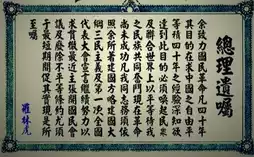 總理遺囑
余致力國民革命凡四十年
其目的在求中國之自由平
等積四十年之經驗深知欲
達到此目的必須喚起民眾
及聯合世界上以平等待我
之民族共同奮鬥現在革命
尚未成功凡我同志務須依
照余所著建國方略建國大
綱三民主義及第一次全國
代表大會宣言繼續努力以
求貫徹最近主張開國民會
議及廢除不平等條約尤須
於最短期間促其實現是所
至囑